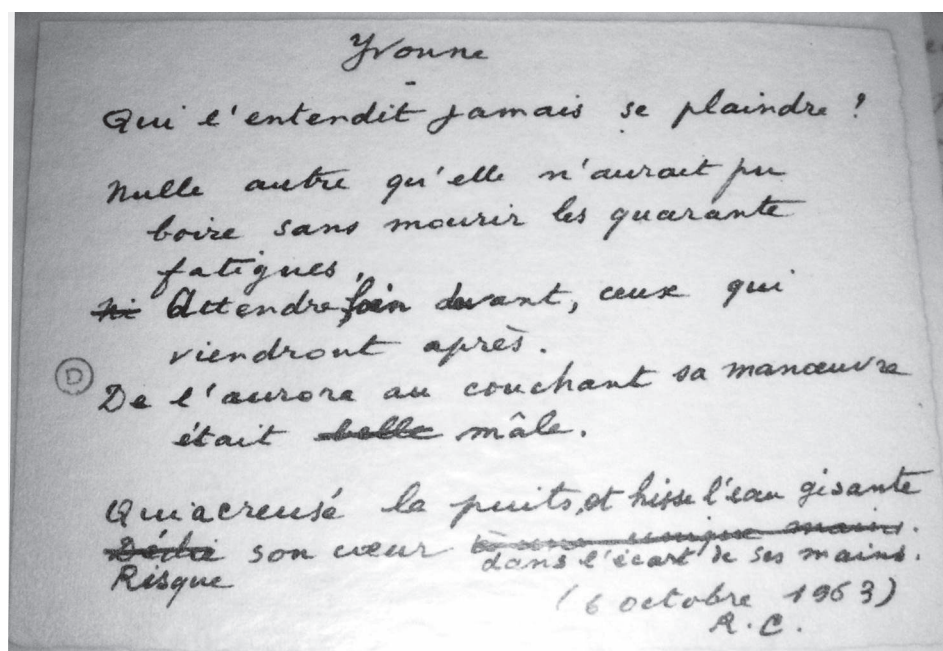 Yvonne
-
Qui l'entendit jamais se plaindre ?
Nulle autre qu'elle n'aurait pu
boire sans mourir les quarante
fatigues,
ni Attendre, loin devant, ceux qui
viendront après.
D
De l'aurore au couchant sa manœuvre
était belle mâle.
Qui a creusé le puits, et hisse l'eau gisante
Dédie son cœur à une unique main.
Risque dans l'écart de ses mains.
(6 octobre 1963)
R. C.